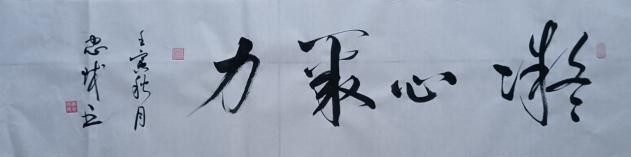 凝心聚力
壬寅秋月
忠诚书